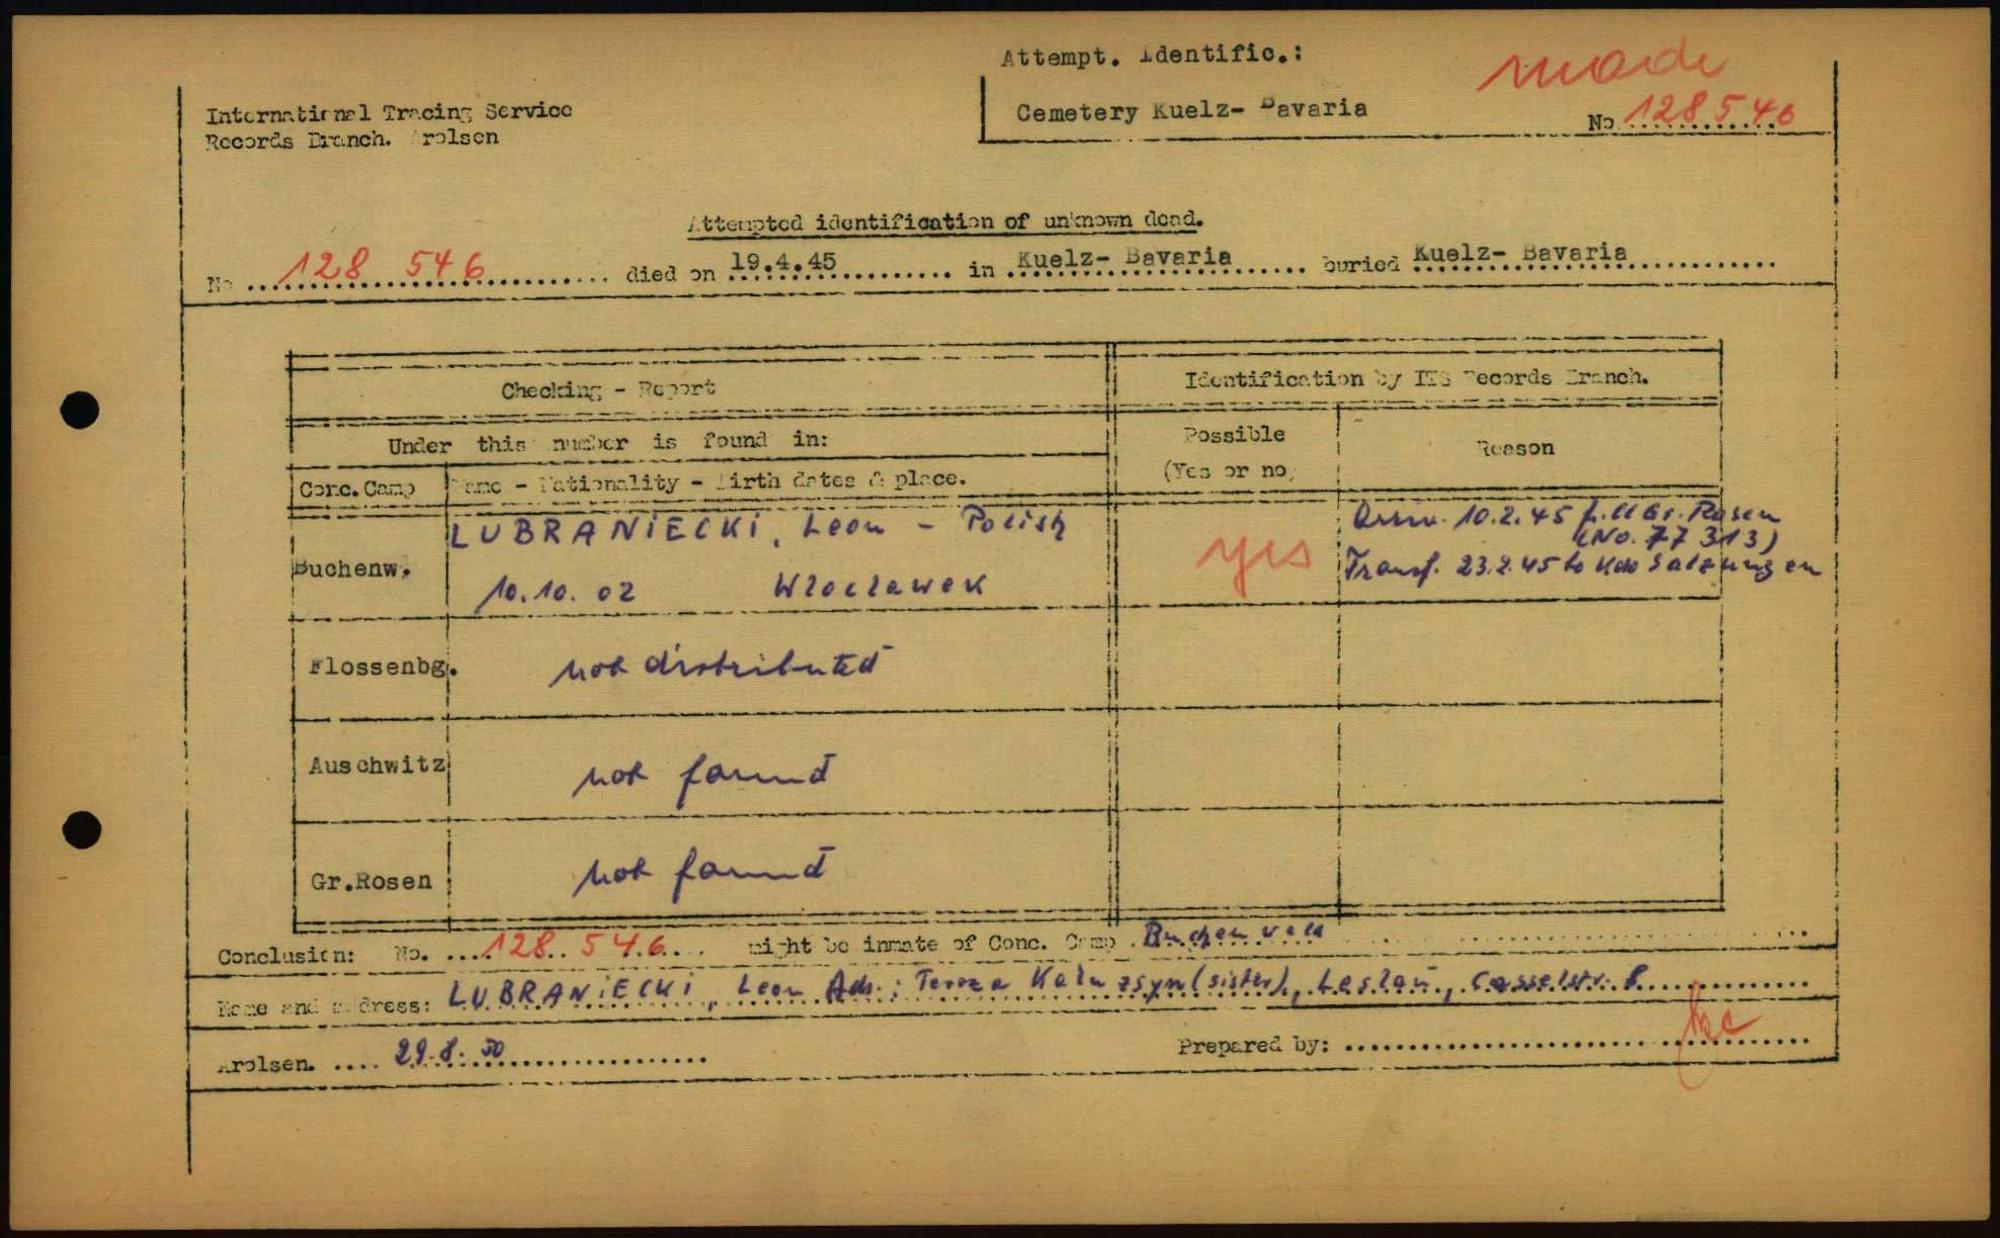 Attempt. Identific.:
made
Cemetery Kuelz- Bavaria
No 128546
International Tracing Service
Records Branch. Arolsen
Attempted identification of unknown dead.
No 128 546 died on 19.4.45 in Kuelz- Bavaria buried Kuelz- Bavaria
Checking - Report
Identification by ITS Records Branch.
Under this number is found in:
Possible
(Yes or no)
Reason
Conc. Camp
Name - Nationality - Birth dates & place.
Buchenw.
LUBRANIECKI, Leon - Polish
10.10.02 Wloclawek
yes
Arriv. 10.2.45 f. Gr. Rosen
(No. 77313)
Transf. 23.2.45 to Kdo Salzungen
Flossenbg.
not distributed
Auschwitz
not found
Gr.Rosen
not found
Conclusion: No. 128 546 might be inmate of Conc. Camp Buchenwald
Name and address: LUBRANIECKI, Leon Adr.: (sister), Leslau, Casselstr. 8
Arolsen. 29.8.50
Prepared by: